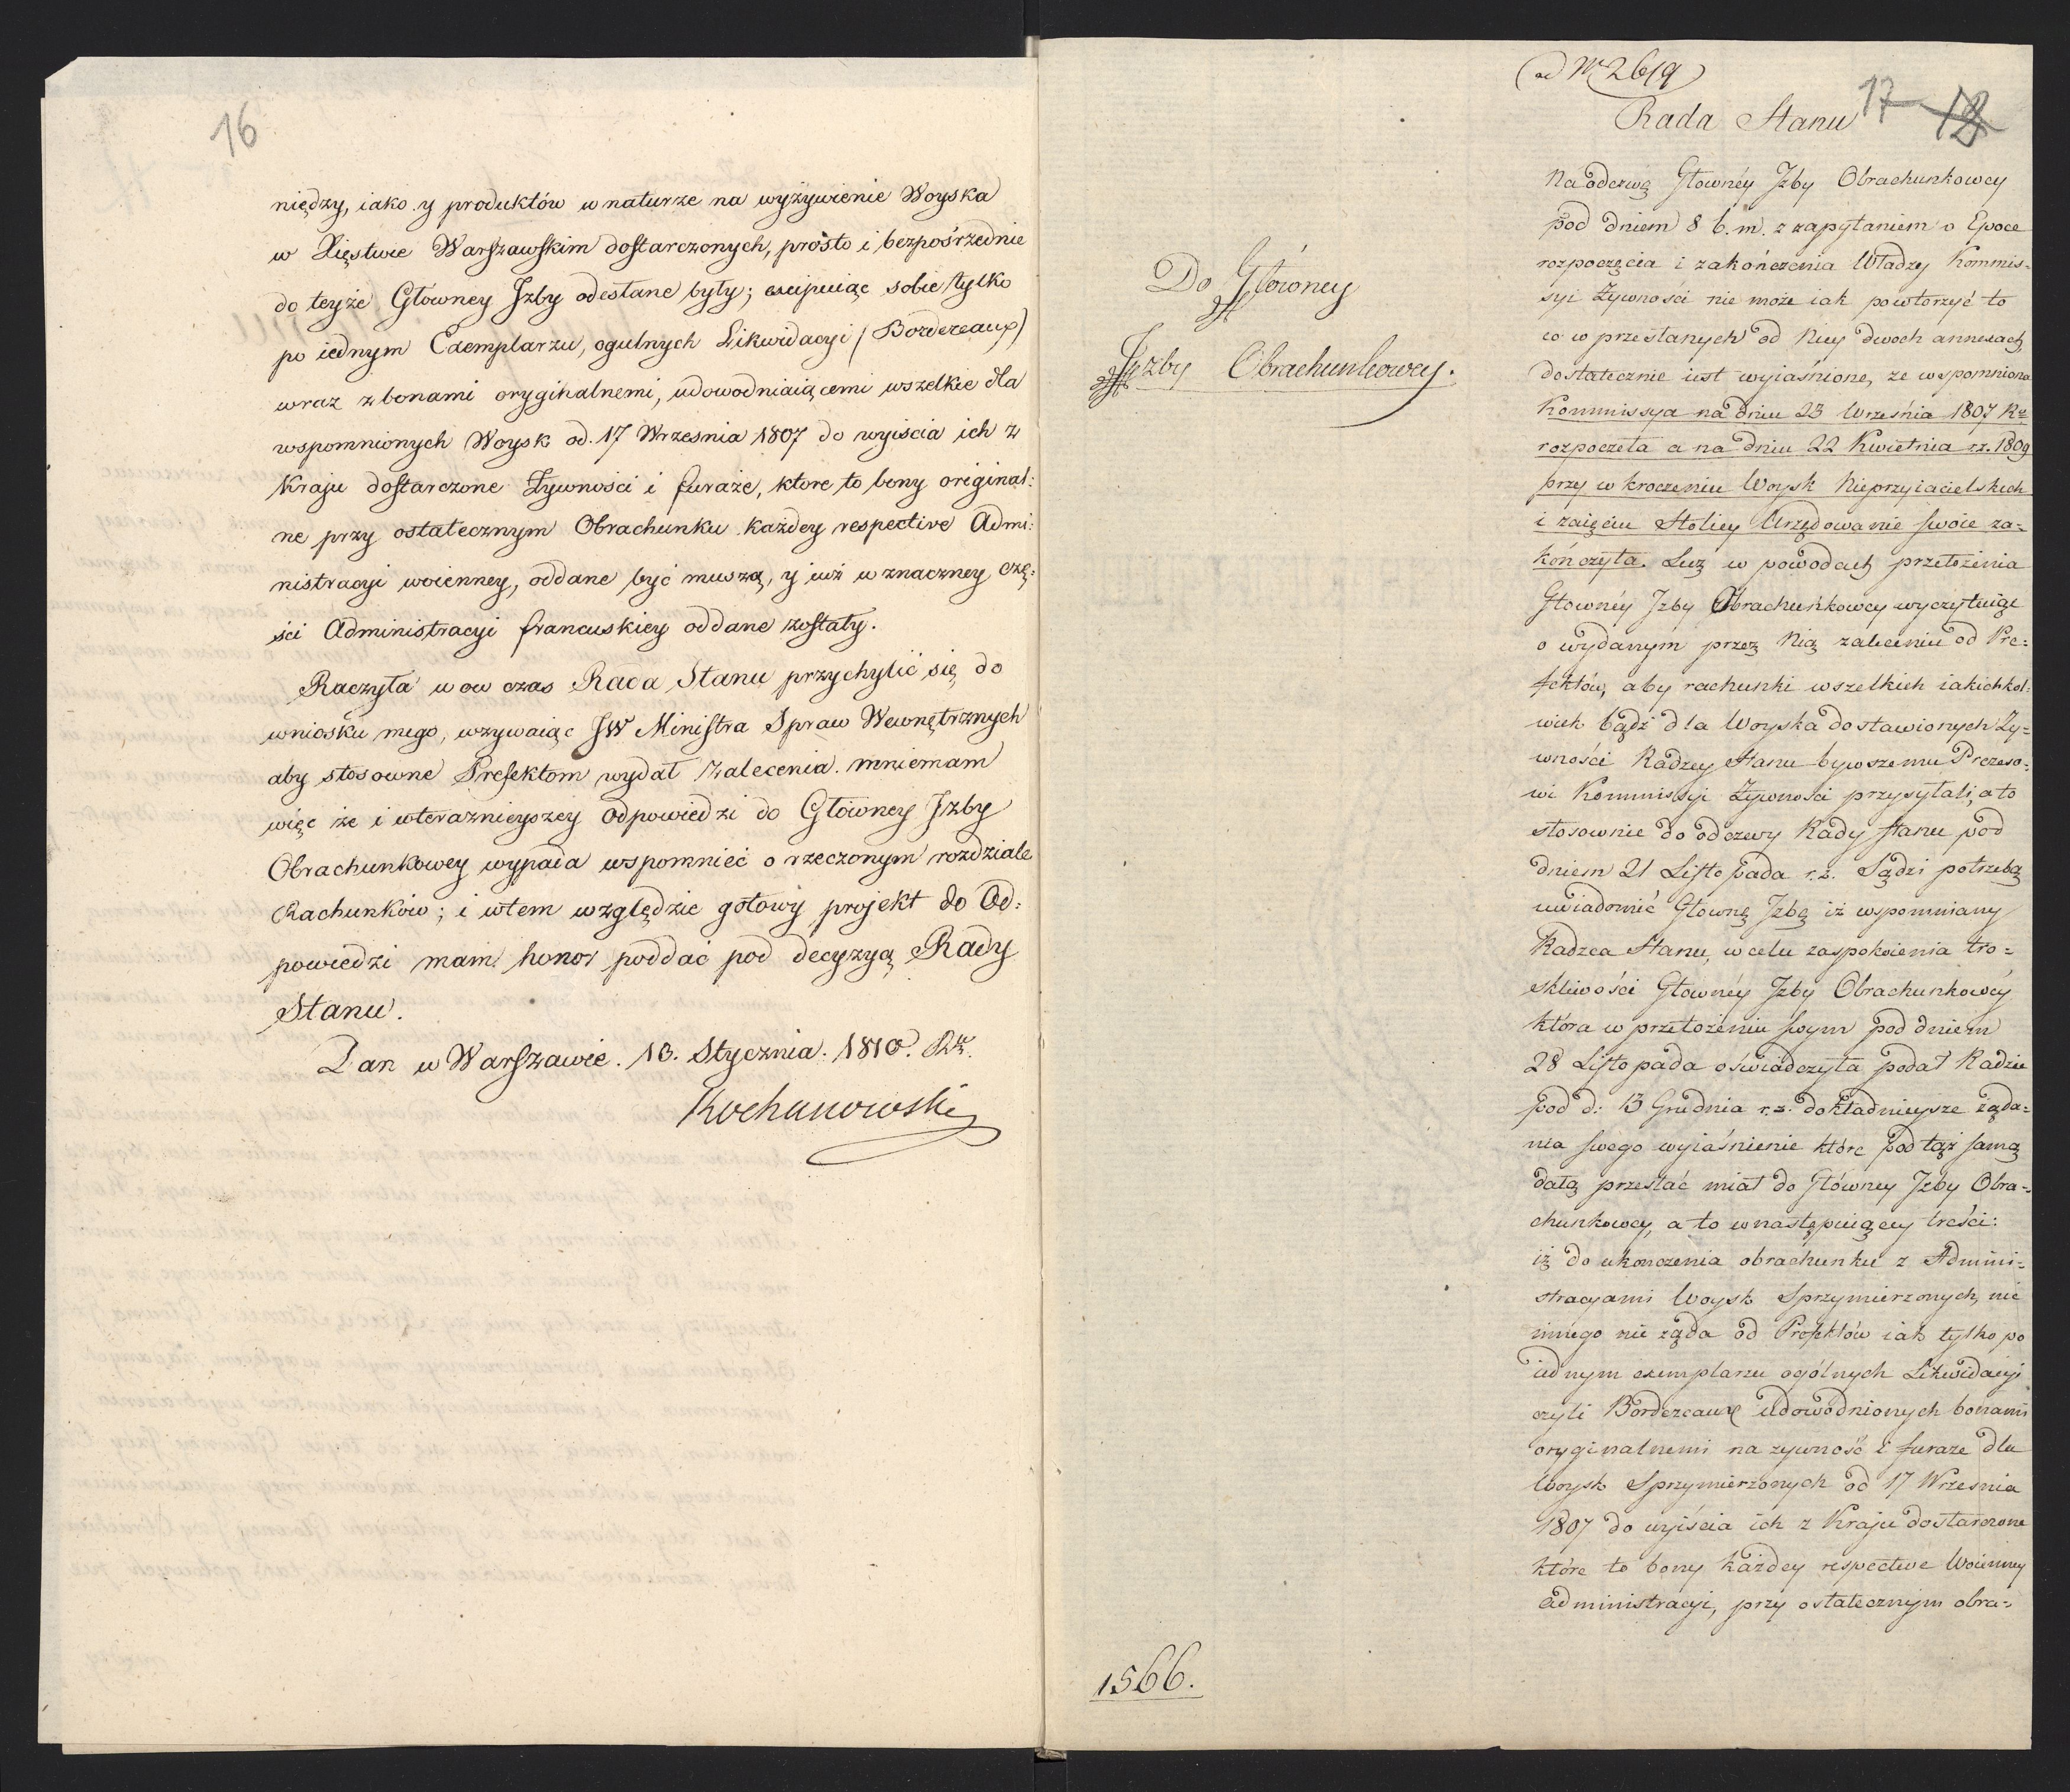 16
niędzy, iako y produktów w naturze na wyżywienie Woyska
w Xięstwie Warszawskim dostarczonych, prosto i bezpośrzednie
do teyże Główney Izby odesłane były; excipuiąc sobie tylko
po iednym Exemplarzu, ogulnych Likwidacyi (Bordereaux)
wraz z bonami oryginalnemi, udowodniaiącemi wszelkie dla
wspomnionych Woysk od. 17 Wrzesnia 1807 do wyiścia ich z
Kraju dostarczone Żywności i furaże, ktore to bony original:
ne przy ostatecznym Obrachunku każdey respective Admi:
nistracyi woienney, oddane być muszą, y iuż w znaczney czę:
ści Administracyi francuskiey oddane zostały.
Raczyła w ow czas Rada Stanu przychylić się do
wniosku mego, wzywaiąc JW Ministra Spraw Wewnętrznych
aby stosowne Prefektom wydał Zalecenia. mniemam
więc że i w terazniejszey odpowiedzi do Główney Izby
Obrachunkowey wypada wspomnieć o rzeczonym rozdziale
Rachunków; i w tem względzie gotowy projekt do Od:
powiedzi mam honor poddać pod decyzyą Rady
Stanu.
Dan w Warszawie. 13. Stycznia. 1810. Rk.
Kochanowski
(ad Nr 2619)
Rada Stanu
17 18
Do Główney
Izby Obrachunkowey.
Na odezwę Główney Izby Obrachunkowey
pod dniem 8 b. m. z zapytaniem o Epoce
rozpoczęcia i zakończenia Władzy Kommis-
syi Żywności nie może iak powtorzyć to
co w przesłanych od Niey dwoch annexach
dostatecznie iest wyiaśnione, ze wspomniona
Kommissya na dniu 23 Września 1807 Ru
rozpoczęta a na dniu 22 Kwietnia r.z. 1809
przy wkroczeniu Woysk Nieprzyiacielskich
i zaięciu Stolicy Urzędowanie swoie za-
kończyła. Lecz w powodach przełożenia
Główney Izby Obrachunkowey wyczytuiąc
o wydanym przez Nią zaleceniu od Pre-
fektów, aby rachunki wszelkich iakichkol-
wiek bądź dla Woyska dostawionych Ży-
wności Radzcy Stanu bywszemu Prezeso-
wi Kommissyi Żywności przysyłali, a to
stosownie do odezwy Rady Stanu pod
dniem 21 Listopada r.z. Sądzi potrzebą
uwiadomić Główną Izbę iż wspomniany
Radzca Stanu, w celu zaspokoienia tro-
skliwości Główney Izby Obrachunkowey
która w przełożeniu swym pod dniem
28 Listopada oświadczyła podał Radzie
pod d: 13 Grudnia r.z. dokładnieysze żąda-
nia swego wyiaśnienie które pod tąż samą
datą przesłać miał do Główney Izby Obra-
chunkowey, a to w następuiącey treści:
iż do ukończenia obrachunku z Admini-
stracyami Woysk Sprzymierzonych, nic
innego nie żąda od Prefektów iak tylko po
iednym exemplarzu ogólnych Likwidacyi
czyli Bordereaux udowodnionych bonami
oryginalnemi na żywność i furaże dla
Woysk Sprzymierzonych od 17 Wrzesnia
1807 do wyiścia ich z Kraju dostarczone
które to bony każdey respective Woienney
administracyi, przy ostatecznym obra-
1566.